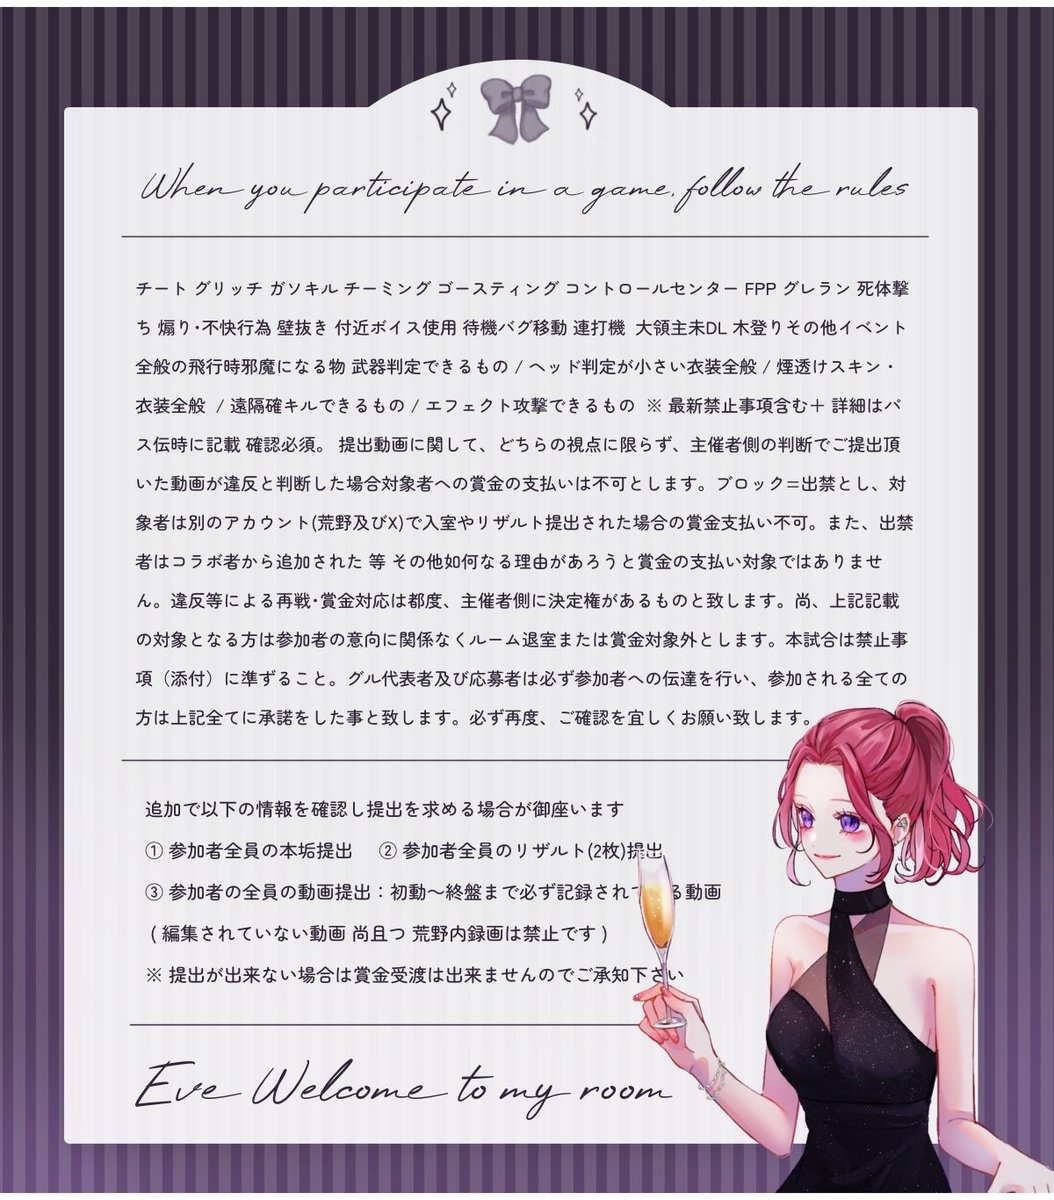 When you participate in a game, follow the rules
チート グリッチ ガソキル チーミング ゴースティング コントロールセンター FPP グレラン 死体撃
ち 煽り･不快行為 壁抜き 付近ボイス使用 待機バグ移動 連打機 大領主未DL 木登りその他イベント
全般の飛行時邪魔になる物 武器判定できるもの / ヘッド判定が小さい衣装全般 / 煙透けスキン・
衣装全般 / 遠隔確キルできるもの / エフェクト攻撃できるもの ※ 最新禁止事項含む＋ 詳細はパ
ス伝時に記載 確認必須。 提出動画に関して、どちらの視点に限らず、主催者側の判断でご提出頂
いた動画が違反と判断した場合対象者への賞金の支払いは不可とします。ブロック＝出禁とし、対
象者は別のアカウント(荒野及びX)で入室やリザルト提出された場合の賞金支払い不可。また、出禁
者はコラボ者から追加された 等 その他如何なる理由があろうと賞金の支払い対象ではありませ
ん。違反等による再戦･賞金対応は都度、主催者側に決定権があるものと致します。尚、上記記載
の対象となる方は参加者の意向に関係なくルーム退室または賞金対象外とします。本試合は禁止事
項（添付）に準ずること。グル代表者及び応募者は必ず参加者への伝達を行い、参加される全ての
方は上記全てに承諾をした事と致します。必ず再度、ご確認を宜しくお願い致します。
追加で以下の情報を確認し提出を求める場合が御座います
① 参加者全員の本垢提出 ② 参加者全員のリザルト(2枚)提出
③ 参加者の全員の動画提出：初動〜終盤まで必ず記録されてる動画
( 編集されていない動画 尚且つ 荒野内録画は禁止です )
※ 提出が出来ない場合は賞金受渡は出来ませんのでご承知下さい
Eve Welcome to my room